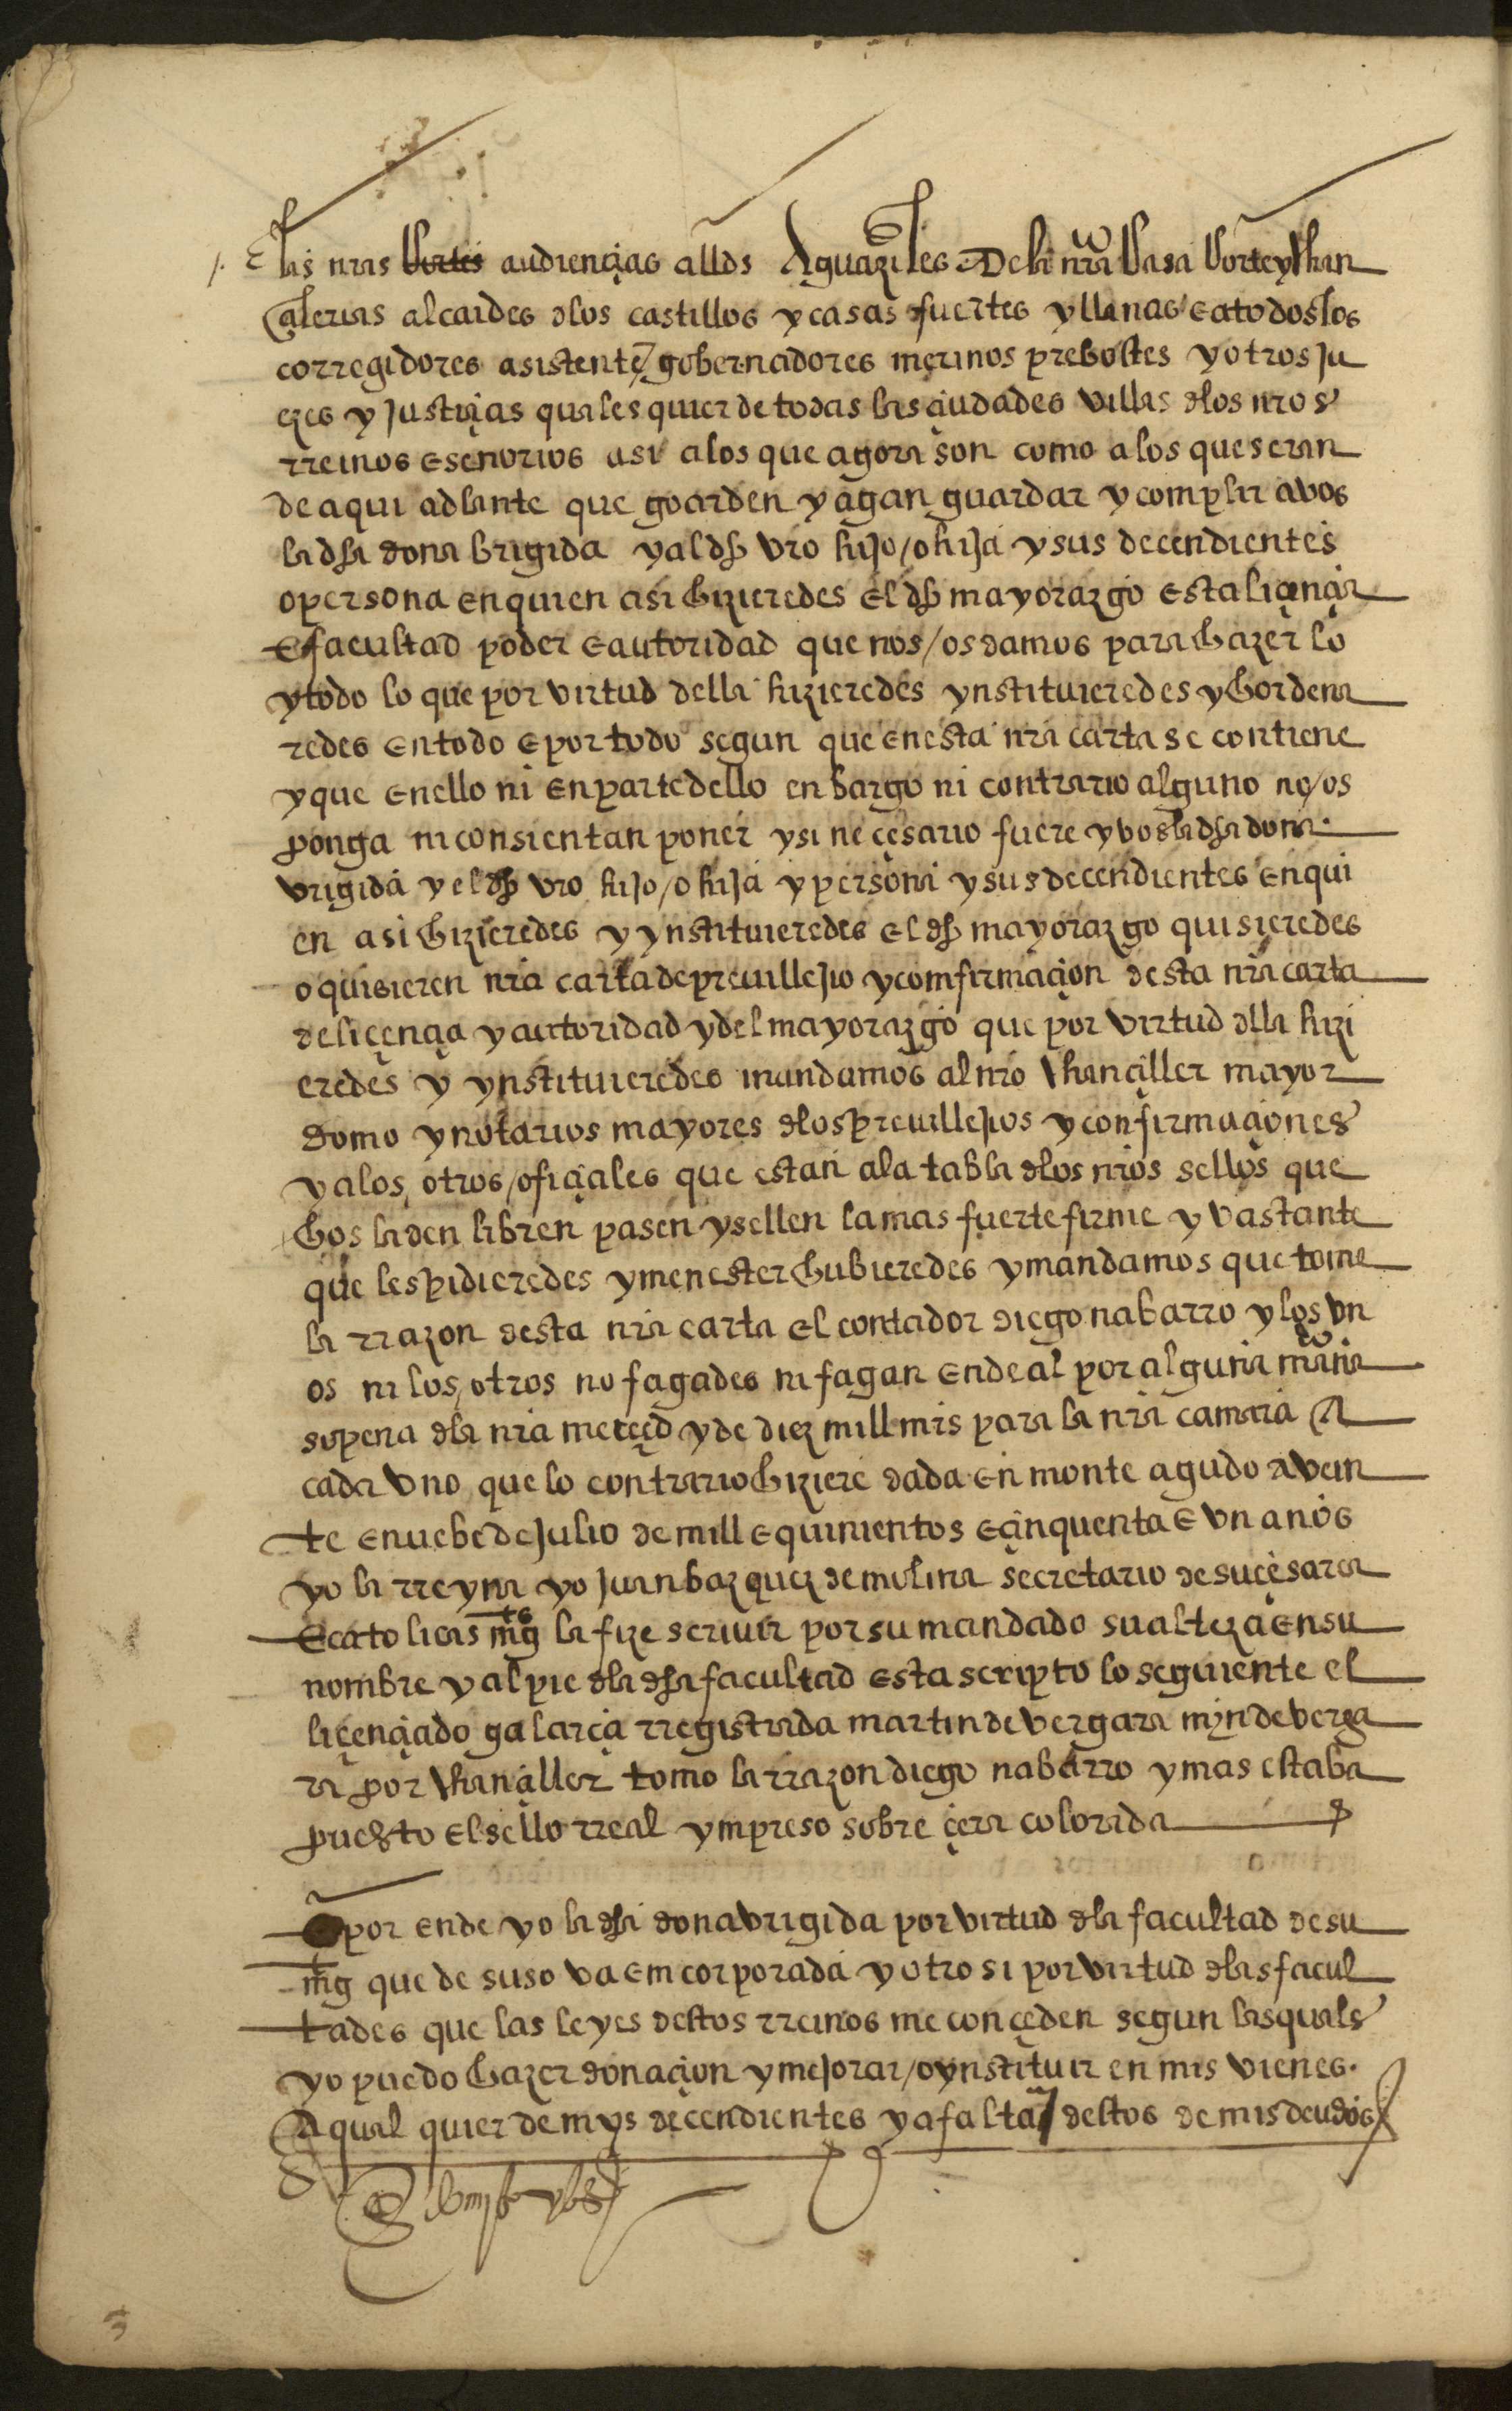 E las nras Cortes audiençias allds Aguaziles Dela nra Casa Corte y chan
çalerias alcaides dlos castillos y casas fuertes y llanas e a todos los
corregidores asistente gobernadores merinos prebostes y otros Ju
ezes y Justiçias quales quier de todas las çiudades villas dlos nros
rreinos e senorios asi a los que agora son como a los que seran
de aqui adlante que goarden y agan guardar y complir a vos
la dha dona brigida y al dho vro hijo / o hija y sus decendientes
o persona en quien asi hizieredes el dho mayorazgo esta liçençia
E facultad poder e autoridad que nos / os damos para hazer lo
y todo lo que por virtud della hizieredes ynstituieredes y hordena
redes en todo e por todo segun que en esta nra carta se contiene
y que en ello ni en parte dello enbargo ni contrario alguno no / os
ponga ni consientan poner y si neçesario fuere y vos la dha dona
vrigida y el dho vro hijo / o hija y persona y sus decendientes en qui
en asi hizieredes y ynstituieredes el dho mayorazgo quisieredes
o quisieren nra carta de preuillejio y comfirmaçion desta nra carta
de liçençia y autoridad y del mayorazgo que por virtud dlla hizi
eredes y ynstituieredes mandamos al nro chançiller mayor
domo y notarios mayores dlos preuillejios y confirmaçiones
y a los otros / ofiçiales que estan a la tabla dlos nros sellos que
hos la den libren pasen y sellen la mas fuerte firme y vastante
que les pidieredes y menester hubieredes y mandamos que tome
la rrazon desta nra carta el contador diego nabarro y los vn
os ni los / otros no fagades ni fagan ende al por alguna mana
so pena dla nra merçed y de diez mill mrs para la nra camara A
cada vno que lo contrario hiziere dada en monte agudo a vein
te e nuebe de Julio de mill e quinientos e çinquenta e vn anos
yo la rreyna yo Juan bazquez de molina secretario de su çesarea
E catolicas mgtes la fize scriuir por su mandado su alteza en su
nombre y al pie dla dha facultad esta scripto lo seguiente el
liçençiado galarça rregistrada martin de vergara myn de verga
ra por chançiller tomo la rrazon diego nabarro y mas estaba
puesto el sello rreal ympreso sobre çera colorada
E por ende yo la dha dona vrigida por virtud dla facultad de su
mgt que de suso va emcorporada y otro si por virtud dlas facul
tades que las leyes destos rreinos me conçeden segun las quales
yo puedo hazer donaçion y mejorar / o ynstituir en mis vienes
A qual quier de mys deçendientes y a falta destos de mis deudos
3